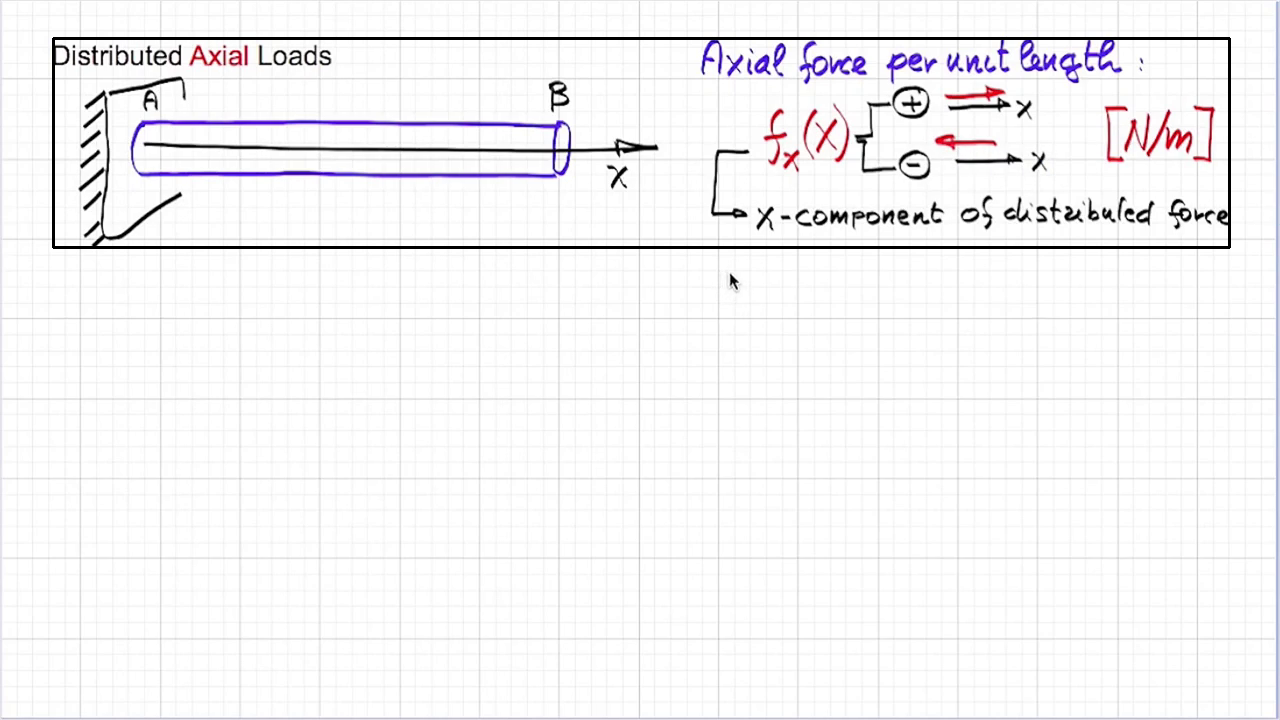 Distributed Axial Loads
Axial force per unit length :
A
B
x
fx(x)
+
x
-
x
[N/m]
x-component of distribuled force